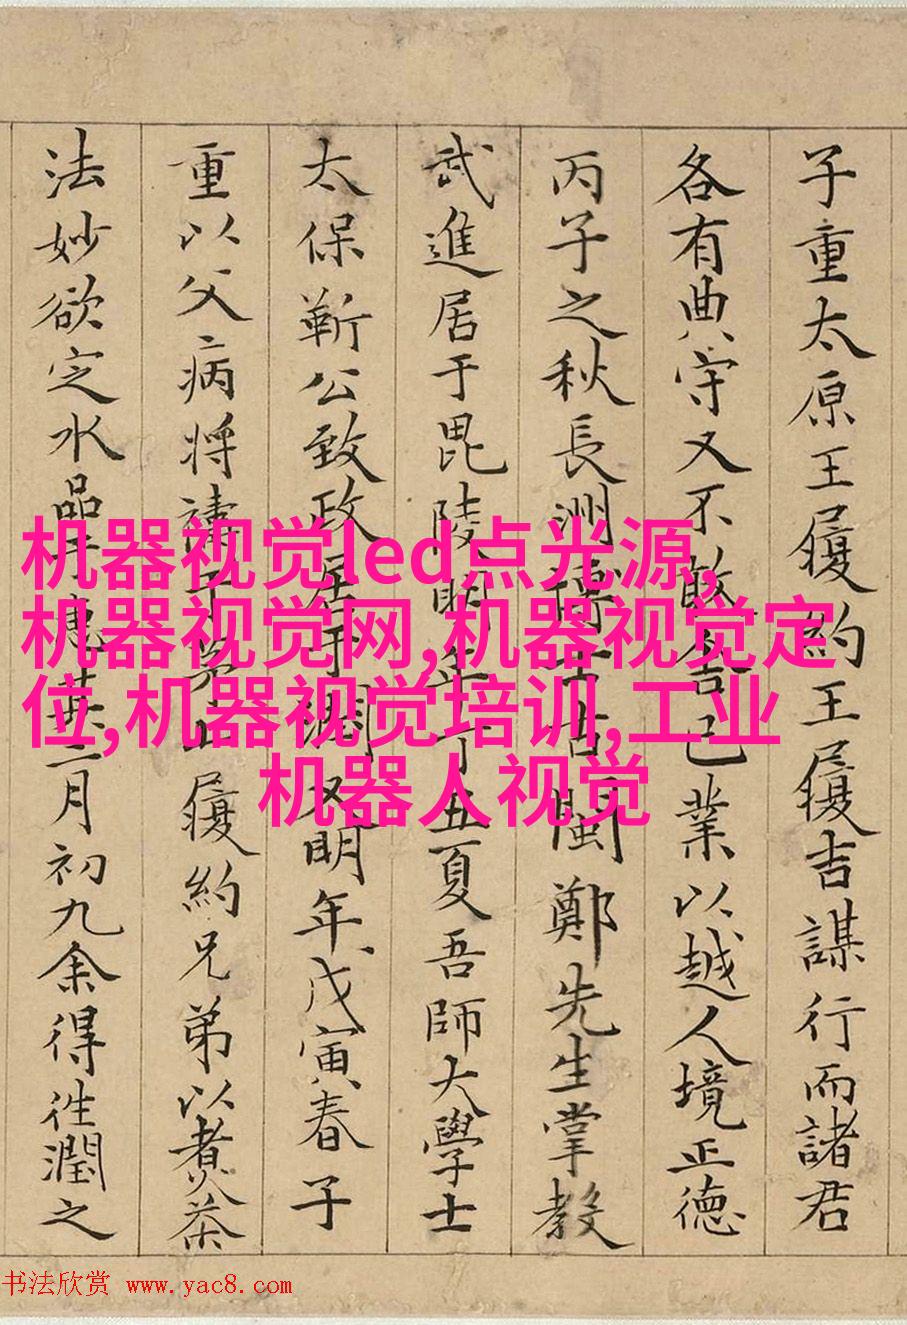 子重太原王履約王履吉謀行而諸君
各有典守又不敢舍己業以越人境正德
丙子之秋長洲博士古閩鄭先生掌教
武進居于毘陵明年丁丑夏吾師大學士
太保靳公致政居于潤又明年戊寅春子
重以父病將禱于茅山履約兄弟以煮茶
法妙欲定水品于惠其三月初九余得往潤之
机器视觉led点光源,
机器视觉网,机器视觉定
位,机器视觉培训,工业
机器人视觉
书法欣赏 www.yac8.com